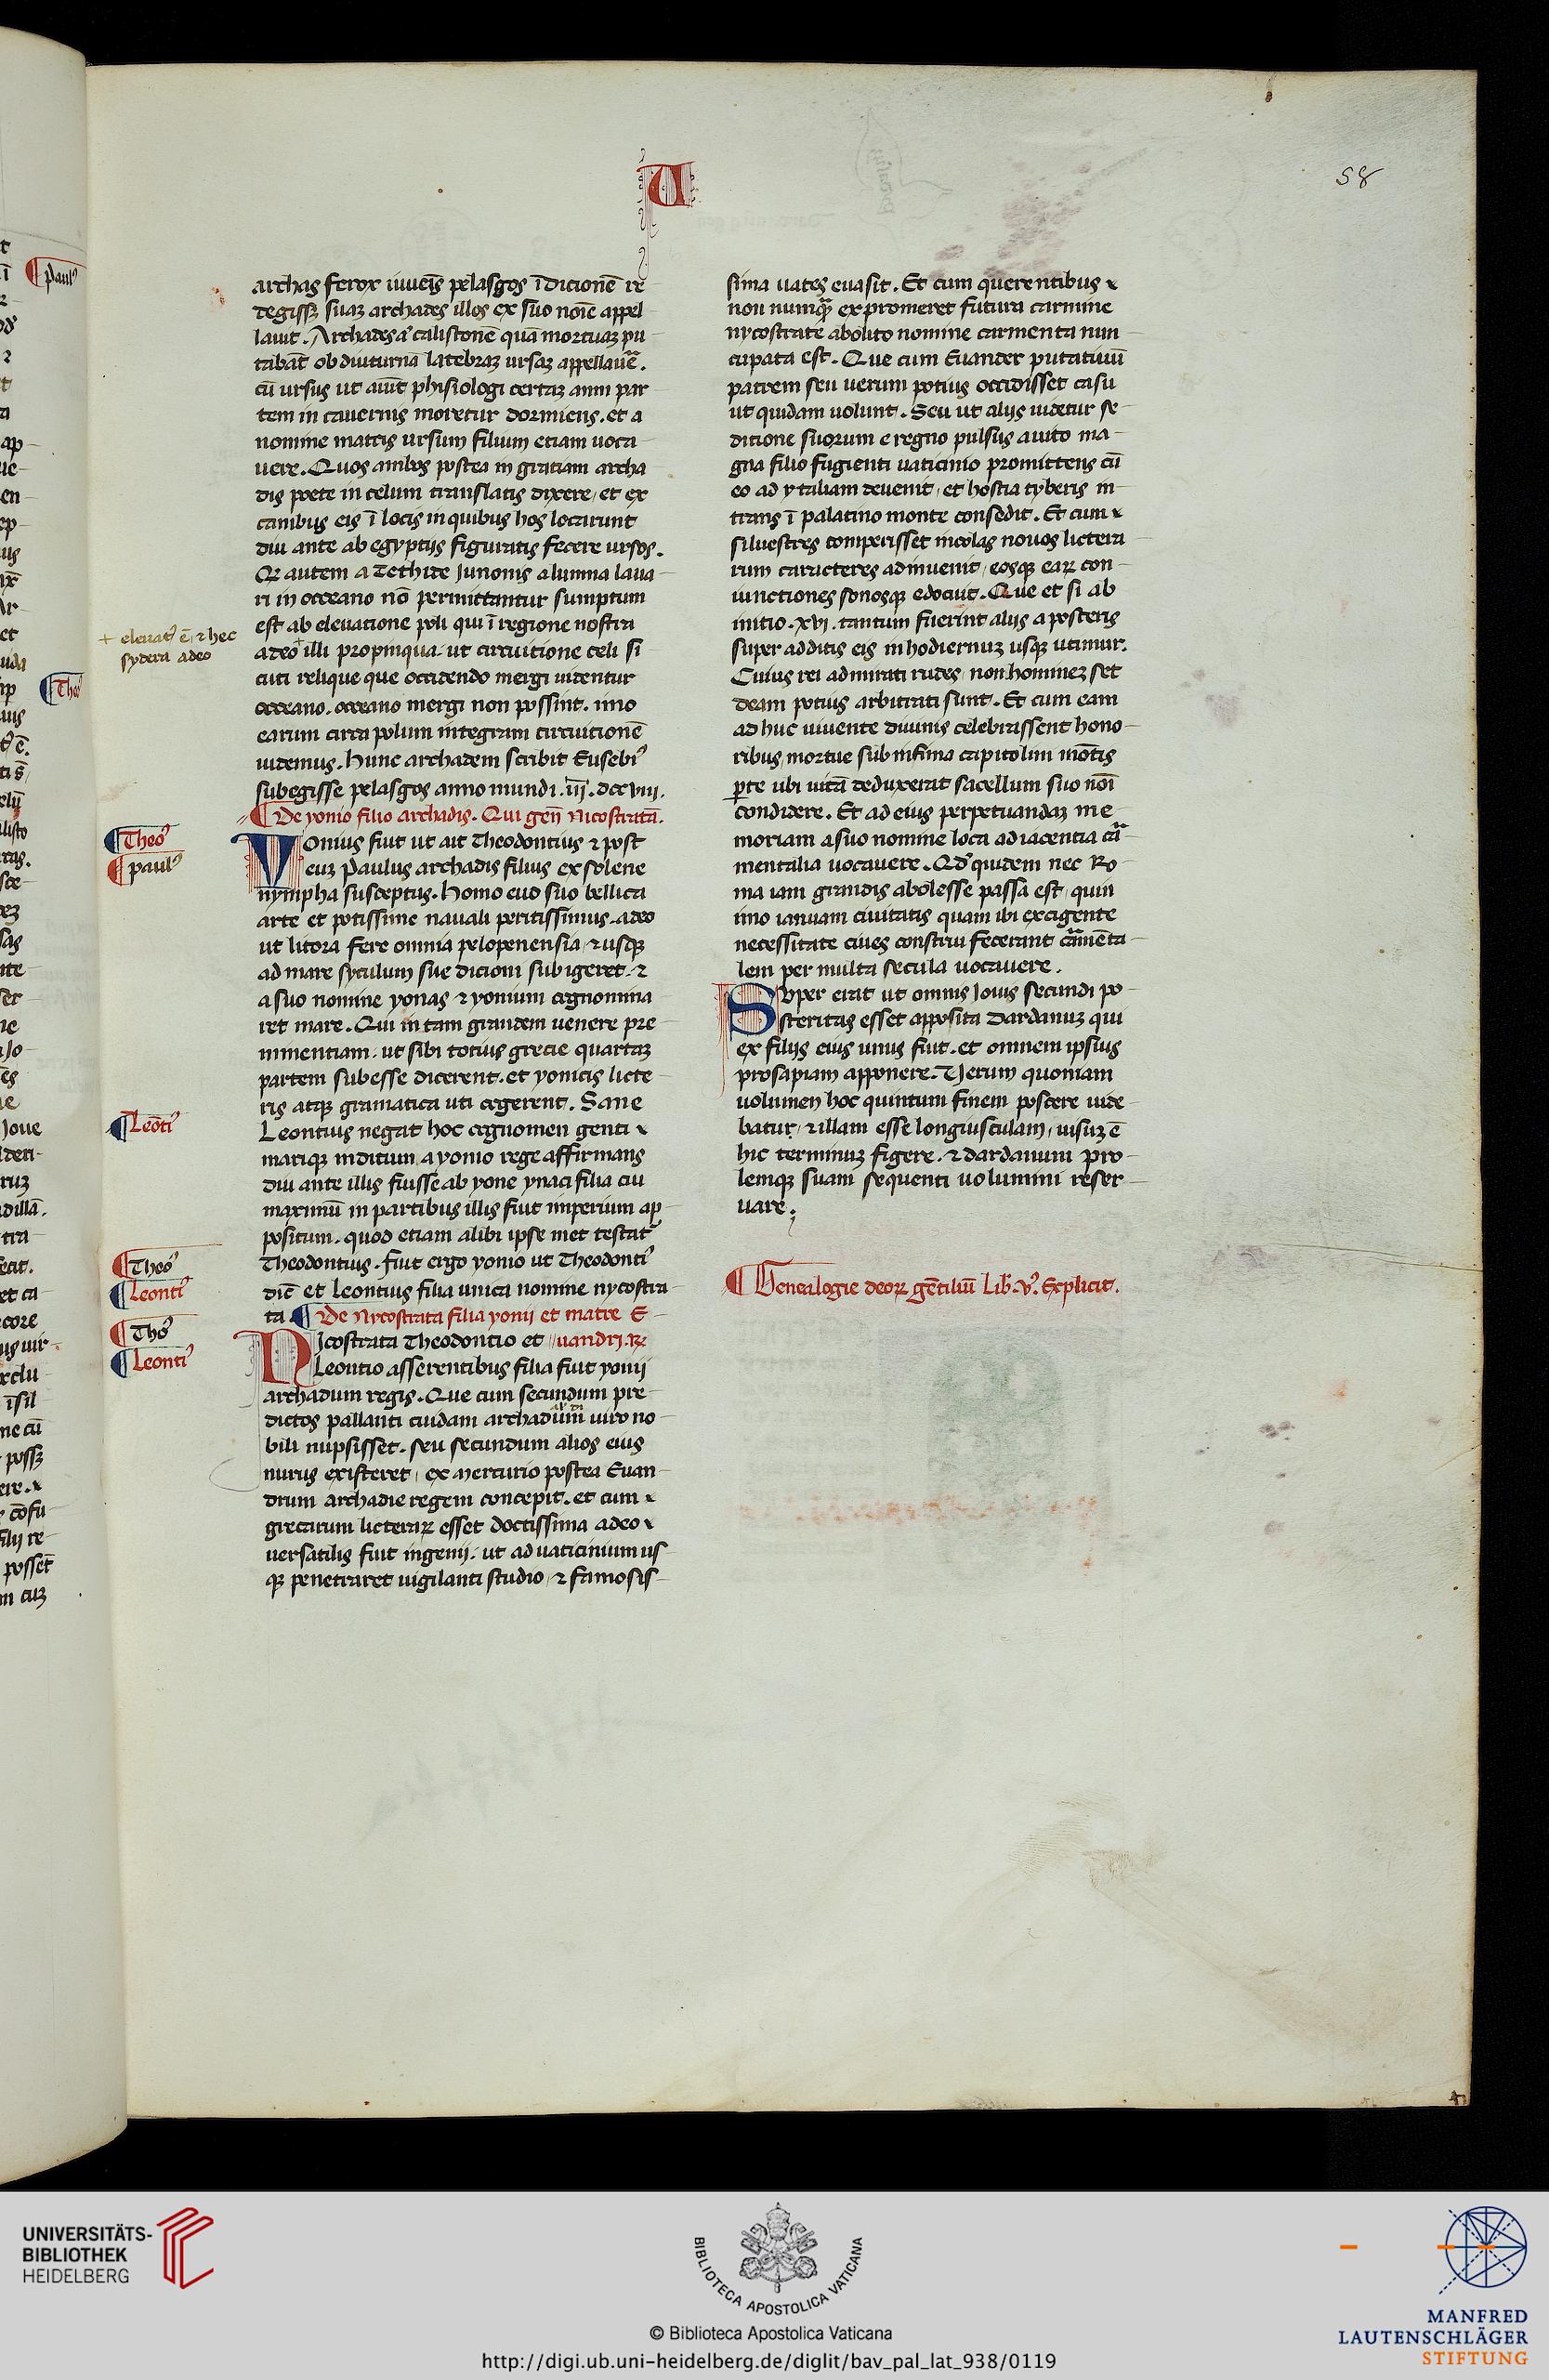 V
58
archas ferox iuuenis pelasgos ī dicionē re
degissꝫ suaꝫ archades illos ex suo noīe appel
lauit. Archades aūt calistonē quā mortuaꝫ pu
tabāt ob diuturnā latebraꝫ ursaꝫ appellauēr.
cū ursus ut aiūt phisiologi certaꝫ anni par
tem in cauernis moretur dormiens. et a
nomine matris ursum filium etiam uoca
uere. Quos ambos postea in gratiam archa
dis poete in celum translatis dixere, et ex
canibus eis ī locis in quibus hos locarunt
diu ante ab egyptijs figuratis fecere ursos.
Qꝛ autem a Tethide Junonis alumna laua
ri in occeano nō permittantur sumptum
est ab eleuatione poli qui ī regione nostra
adeo illi propinqua. ut circuitione celi si
cuti relique que occidendo mergi uidentur
occeano. occeano mergi non possint. imo
earum circa polum integram circuitionē
uidemus. Hunc archadem scribit Eusebi᾿
subegisse pelasgos anno mundi .iij. dccviij.
+ eleuat᾿ ē, ⁊ hec
sydera adeo
¶ De yonio filio archadis. Qui genꝫ Nicostratā.
¶ Theo᾿
¶ paul᾿
YOnius fuit ut ait Theodontius ⁊ post
euꝫ Paulus archadis filius ex solene
nympha susceptus. homo euo suo bellica
arte et potissime nauali peritissimus. adeo
ut litora fere omnia pelopenensia, ⁊ usqꝫ
ad mare syculum sue dicioni subigeret. ⁊
a suo nomine yonas ⁊ yonium cognomina
ret mare. Qui in tam grandem uenere pre
minentiam. ut sibi totius grecie quartaꝫ
partem subesse dicerent. et yonicis licte
ris atqꝫ gramatica uti cogerent. Sane
Leontius negat hoc cognomen genti
mariqꝫ inditum a yonio rege affirmans
diu ante illis fuisse ab yone ynaci filia cui
maximū in partibus illis fuit imperium ap
positum. quod etiam alibi ipse met testat᾿
Theodontius. fuit ergo yonio ut Theodonti᾿
dic̄ et Leontius filia unica nomine nycostra
ta. ¶ De Nycostrata filia yonii et matre E
¶ Leōti᾿
¶ Theo᾿
¶ Leonti᾿
¶ Tho᾿
¶ Leonti᾿
NIcostrata Theodontio et uandri. Rꝫ
Leontio asserentibus filia fuit yonij
archadum regis. Que cum secundum pre
dictos pallanti cuidam archadum uiro no
bili nupsisset. seu secundum alios eius
nurus existeret, ex mercurio postea Euan
drum archadie regem concepit. et cum
grecarum licterarꝫ esset doctissima adeo
uersatilis fuit ingenij. ut ad uaticinium us
qꝫ penetraret uigilanti studio, ⁊ famosis
sima uates euasit. Et cum querentibus
non numqꝫ ex promeret futura carmine
nycostrate abolito nomine carmenta nun
cupata est. Que cum Euander putatiuū
patrem seu uerum potius occidisset casu
ut quidam uolunt. Seu ut alijs uidetur se
ditione suorum e regno pulsus auito ma
gna filio fugienti uaticinio promittens cū
eo ad ytaliam deuenit, et hostia tyberis in
trans ī palatino monte consedit. Et cum
siluestres comperisset incolas nouos lictera
rum caracteres adinuenit, eosqꝫ earꝫ con
iunctiones sonosqꝫ edocuit. Que et si ab
initio .xvi. tantum fuerint alijs a posteris
super additis eis in hodiernuꝫ usqꝫ utimur.
Cuius rei admirati rudes, non homineꝫ set
deam potius arbitrati sunt. Et cum eam
ad huc uiuente diuinis celebrassent hono
ribus, mortue sub infima capitolini mōtis
ꝑte ubi uitā deduxerat sacellum suo noī
condidere. Et ad eius perpetuandaꝫ me
moriam a suo nomine loca adiacentia car
mentalia uocauere. Qd᾿ quidem nec Ro
ma iam grandis abolesse passa est, quin
imo ianuam ciuitatis quam ibi exigente
necessitate ciues construi fecerant carmēta
lem per multa secula uocauere.
SVper erat ut omnis Jouis secundi po
steritas esset apposita Dardanuꝫ qui
ex filijs eius unus fuit. et omnem ipsius
prosapiam apponere. Uerum quoniam
uolumen hoc quintum finem poscere uide
batur, ⁊ illam esse longiusculam, uisuꝫ ē
hic terminuꝫ figere. ⁊ dardanum pro
lemqꝫ suam sequenti uolumini reser
uare.
¶ Genealogie deorꝫ gētiliū Lib᾿. v᾿. Explicit.
UNIVERSITÄTS-
BIBLIOTHEK
HEIDELBERG
BIBLIOTECA APOSTOLICA VATICANA
© Biblioteca Apostolica Vaticana
http://digi.ub.uni-heidelberg.de/diglit/bav_pal_lat_938/0119
MANFRED
LAUTENSCHLÄGER
STIFTUNG